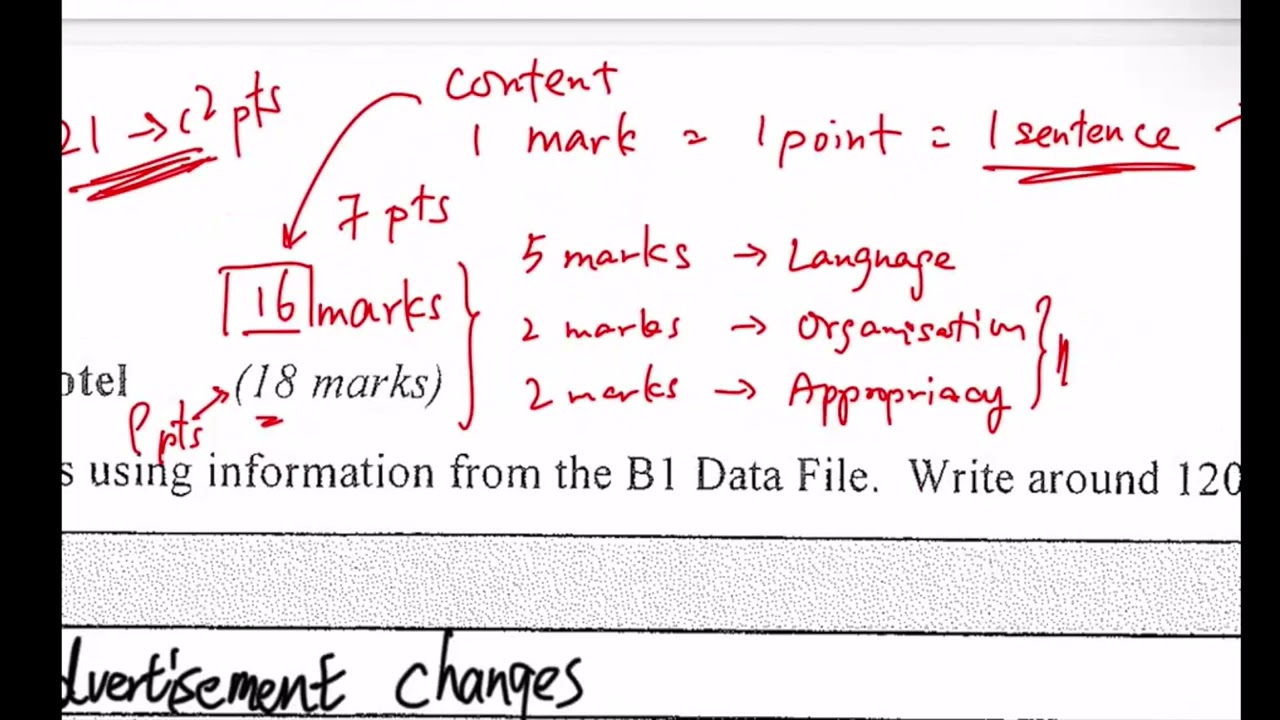 content
21 → 12 pts
1 mark = 1 point = 1 sentence →
7 pts
5 marks → Language
16 marks
2 marks → Organisation
otel (18 marks)
2 marks → Appropriacy
pts
s using information from the B1 Data File. Write around 120
dvertisement changes